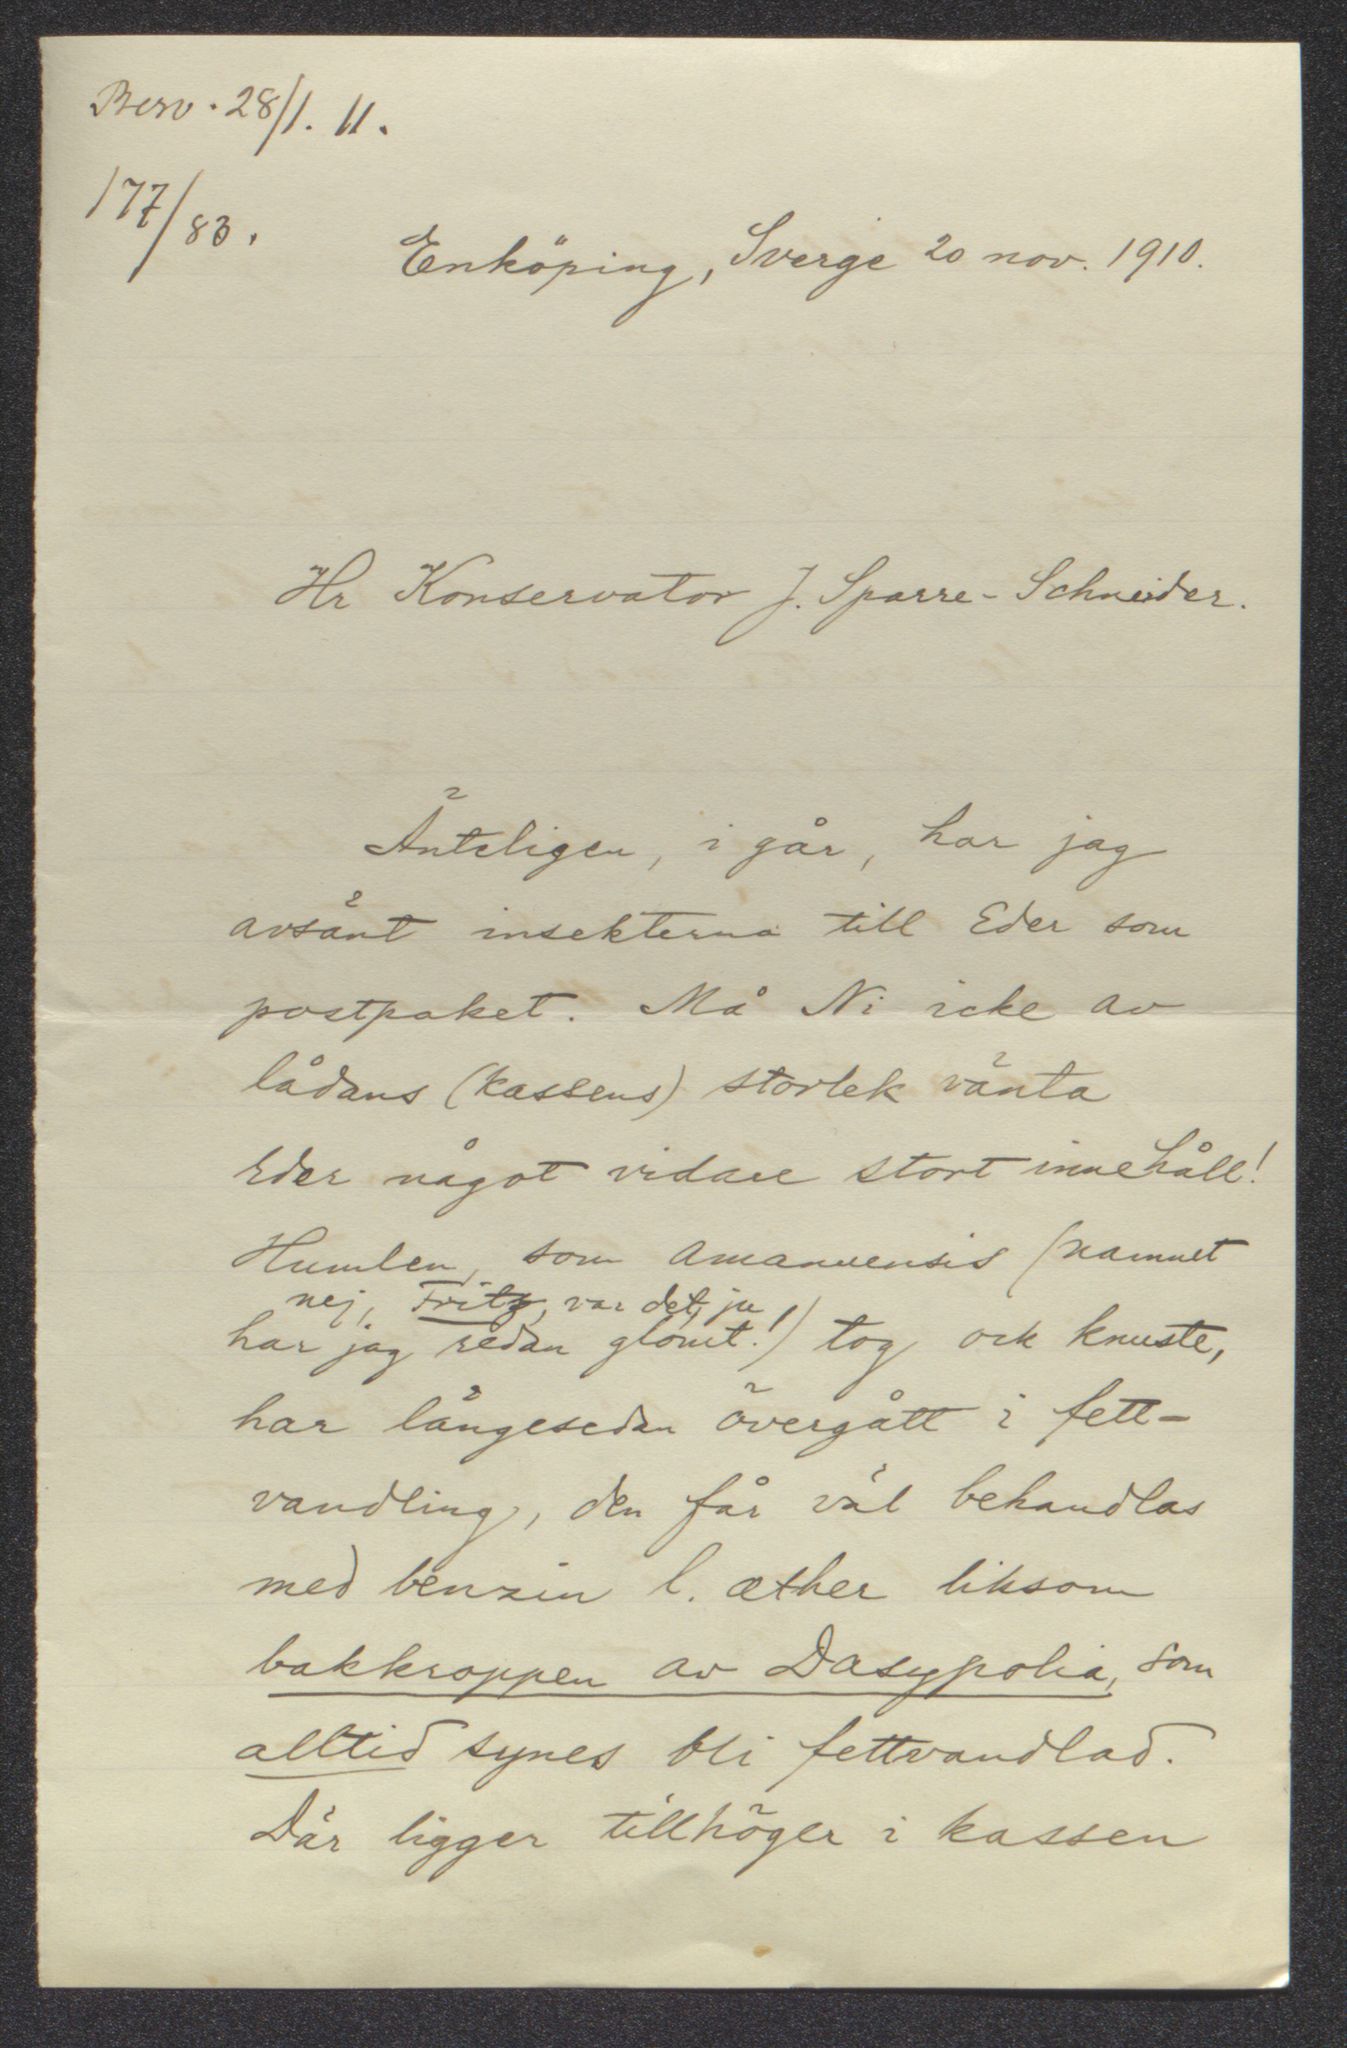 Besv. 28/1. 11.
177/83.
Enköping, Sverge 20 nov. 1910.
Hr Konservator J. Sparre-Schneider.
Änteligen, i går, har jag
avsänt insekterna till Eder som
postpaket. Må Ni icke av
lådans (kassens) storlek vänta
Eder något vidare stort innehåll!
Humlen, som amanuensis (namnet
nej, Fritz, var det ju
har jag redan glömt!) tog ock knuste,
har längesedan övergått i fett-
vandling, den får väl behandlas
med benzin l. æther liksom
bakkroppen av Dasypolia, som
alltid synes bli fettvandlad.
Där ligger tillhöger i kassen